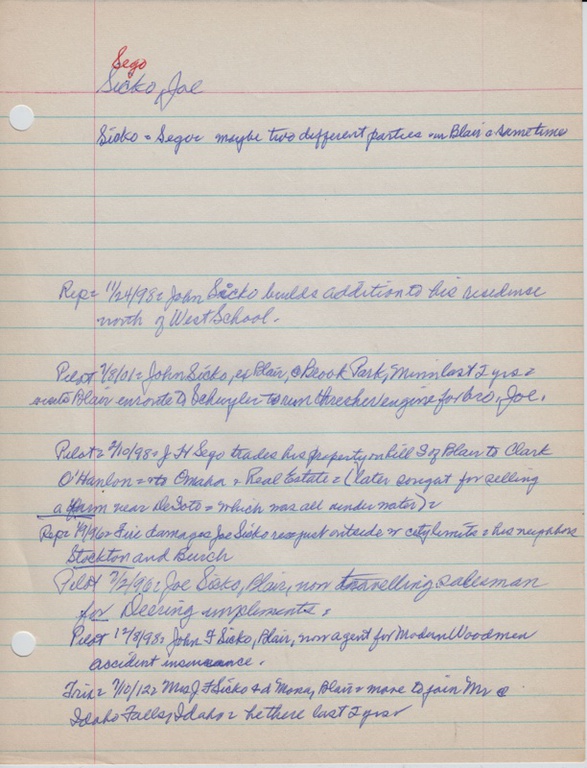 Sego
Sicko, Joe
Sicko = Sego = maybe two different parties in Blair @ sametime
Rep = 11/24/98 = John Sicko builds addition to his residense
north of West School.
Pilot 7/8/01 = John Sicko, ex Blair, @ Brook Park, Minn last 2 yrs =
visits Blair enroute to Schuyler to run thresher engine for bro, Joe.
Pilot = 2/10/98 = J H Sego trades his property on hill S of Blair to Clark
O'Hanlon = to Omaha = Real Estate = (later sought for selling
a farm near DeSoto = which was all under water) =
Rep = 1/9/96 = Fire damages Joe Sicko res just outside w city limits = his neighbors
Stockton and Burch
Pilot 7/2/96 = Joe Sicko, Blair, now travelling salesman
for Deering implements =
Pilot 12/8/98 = John F Sicko, Blair, now agent for Modern Woodmen
accident insurance.
Trib = 7/10/12 = Mrs J F Sicko & d Mona, Blair = move to join Mr @
Idaho Falls, Idaho = he there last 2 yrs